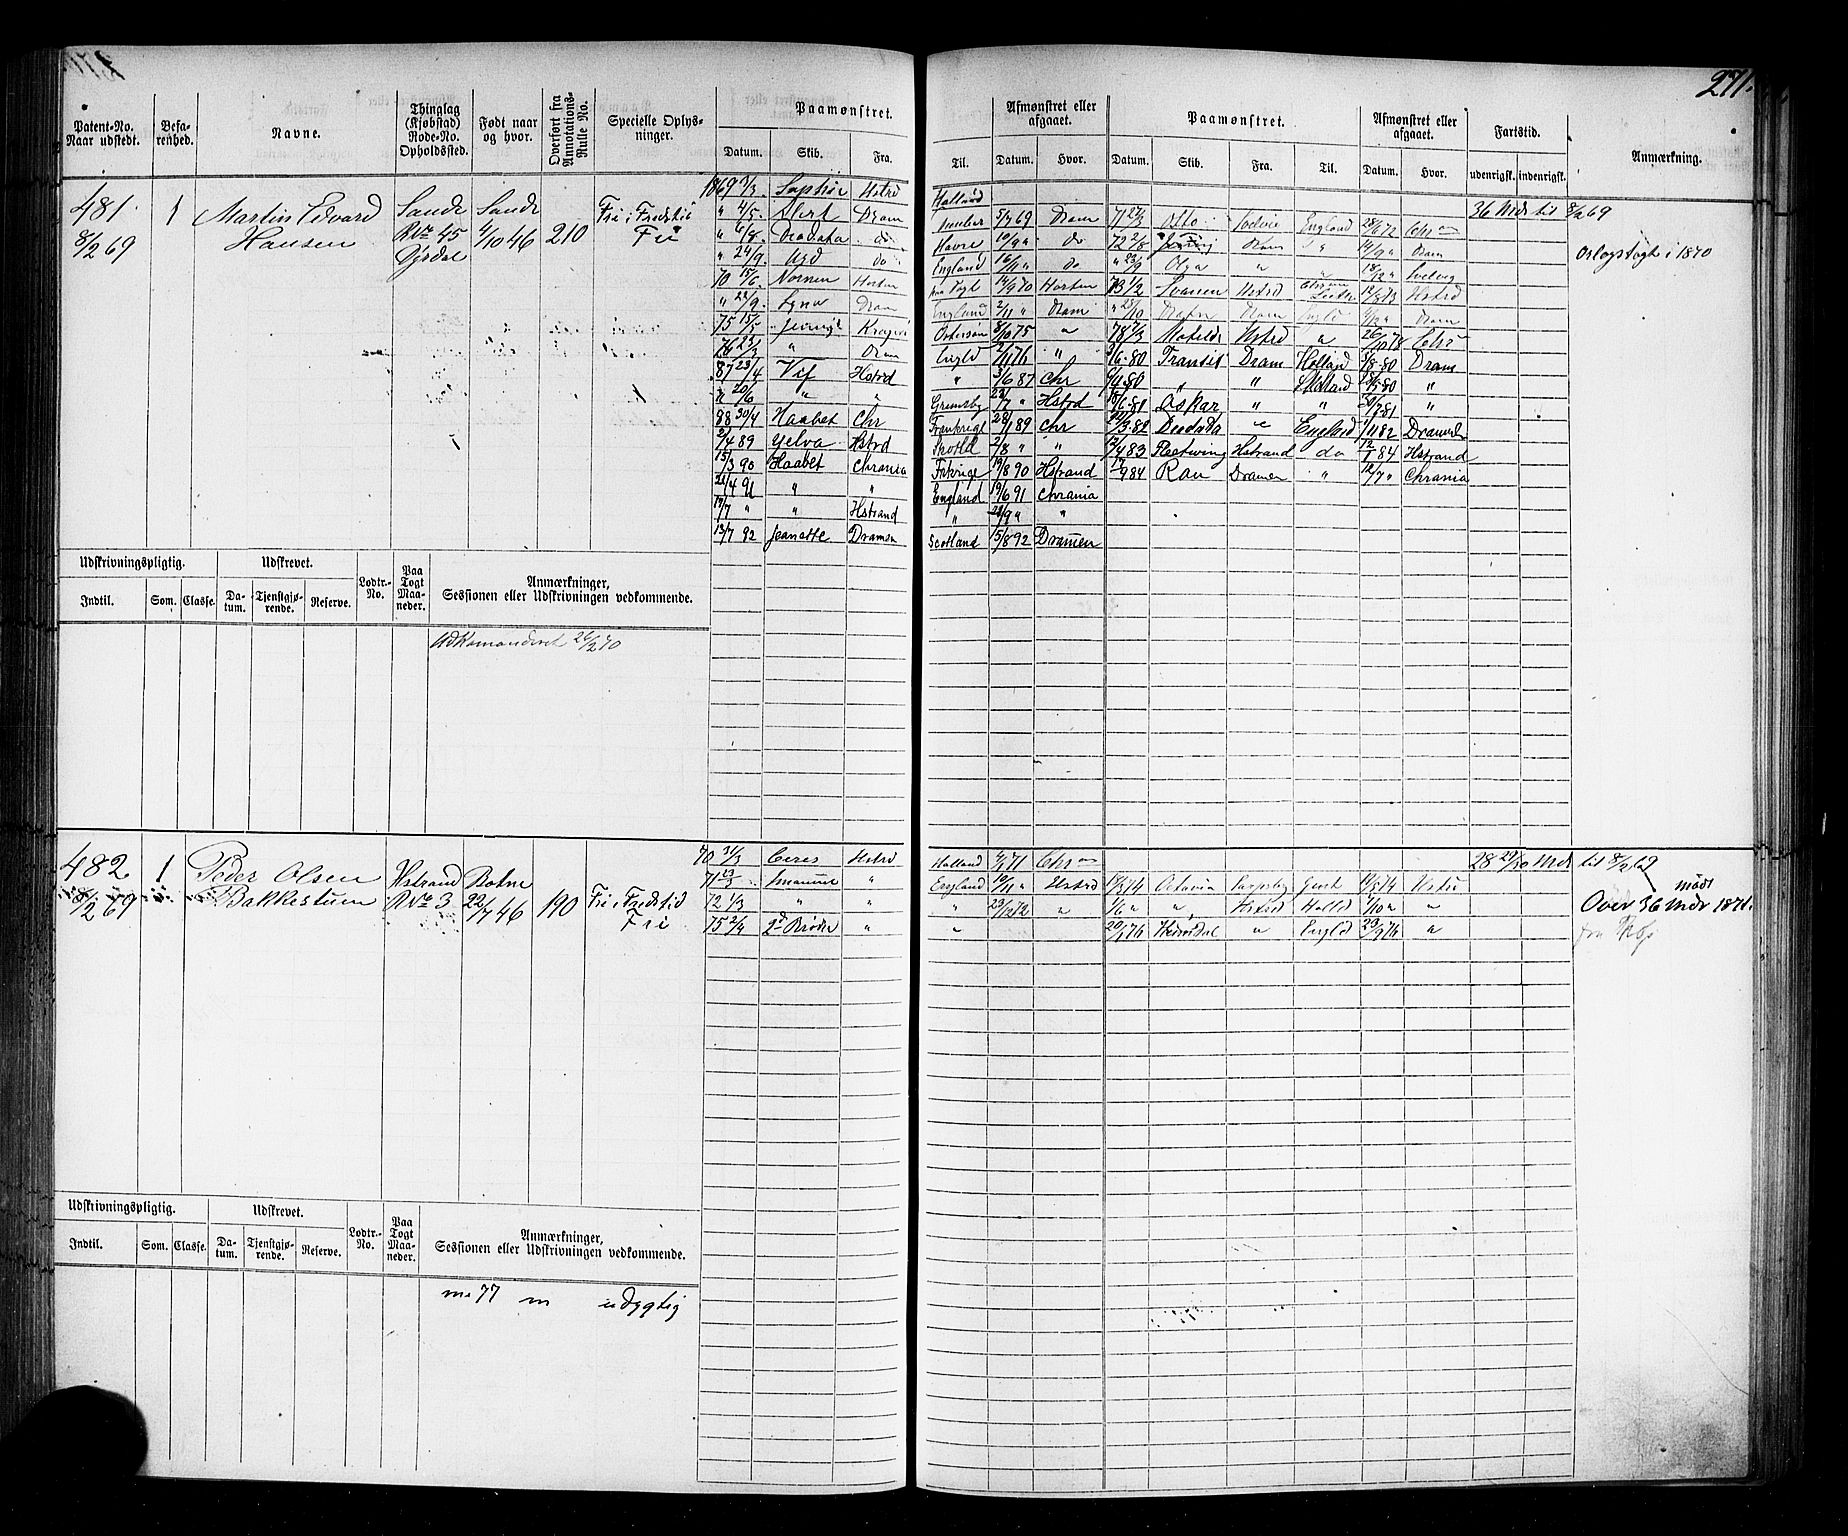 271.
Patent-No. Naar udstedt. | Befarenhed. | Navne. | Thinglag (Kjøbstad) Rode-No. Opholdssted. | Født naar og hvor. | Overført fra Annotations-Rulle No. | Specielle Oplysninger. | Paamønstret. Datum. Skib. Fra.
Til. | Afmønstret eller afgaaet. Datum. Hvor. | Paamønstret. Datum. Skib. Fra. Til. | Afmønstret eller afgaaet. Datum. Hvor. | Fartstid. udenrigsk. indenrigsk. | Anmærkning.
481 8/2 69 | 1 | Martin Edvard Hansen | Sande R No 45 | Sande 4/10 46 | 210 | Fri i Fredstid Fri
1869 7/3. Hstrd Holland
" 4/5. Dram 5/7 69 Dram 71 27/3 Otto England 28/6 72 Chr
" 6/8. Deodata do Havre 10/9 " do 72 2/8 Dram " 14/9 " Dram
" 24/9. do England 16/11 " do " 23/9 Olga " " 18/12 "
70 15/6. Nornen Horten paa Togt 14/9 70 Horten 73 1/2 Svanen Hstrd 12/5 73 Hstrd
" 22/9. Dram England 2/11 " Dram " 25/10 Dram Engld Dram
75 15/5 Østersøn 8/10 75 " 78 2/3 Matilde Hstrd " 26/10 78 Chr
76 23/3 " Dram Engld 2/11 76 " " 3/6-80 Transit Dram Holland 3/8-80 Dram
87 23/4 Vif Hstrd " 3/6 87 Chr 6/9-80 " " "
" 20/6 " " Grimsby Hstrd 18/6-81 Oskar " " 30/7-81 "
88 30/4 Haabet Chr Frankrige 28/1 89 Chr 29/3-82 Deodata " England 82 Dramen
2/4 89 Yelva Hstrd Skotld 2/8 " " 12/4 83 Fleetwing Hstrand do 12/1 84 Hstrand
15/3 90 Haabet Chrania Frkrige 19/8 90 Hstrand 17/9 84 Ran Dramen " 12/7 " Chrania
21/4 91 " " England 19/6 91 Chrania
19/7 " " Hstrand " 28/9 " "
13/7 92 Jeanette Dramen Scotland 15/8 92 Dramen
36 Mdr til 8/2 69
Orlogstogt i 1870
Udskrivningspligtig. Indtil. Som. Classe. | Udskrevet. Datum. Tjenstgjørende. Reserve. | Lodtr.-No. | Paa Togt Maaneder. | Anmærkninger, Sessionen eller Udskrivningen vedkommende.
Udkomanderet 26/2 70
482 8/2 69 | 1 | Peder Olsen Bakkestuen | Hstrand R No 3 | Botne 22/7 46 | 190 | Fri i Fredstid Fri
70 31/3 Ceres Hstrd Holland Chr
71 23/3 " England 10/11 " Hstrd Octavia 14/5 74
72 1/3 " " " 23/12 72 " 1/6 " " Hstrd Holld 1/10 " "
75 2/4 " " 20/1 76 " Engld 23/9 76 "
28 29/30 Mdr til 8/2 69
Over 36 Mdr mødt 1871.
fra
Udskrivningspligtig. Indtil. Som. Classe. | Udskrevet. Datum. Tjenstgjørende. Reserve. | Lodtr.-No. | Paa Togt Maaneder. | Anmærkninger, Sessionen eller Udskrivningen vedkommende.
77 m udygtig